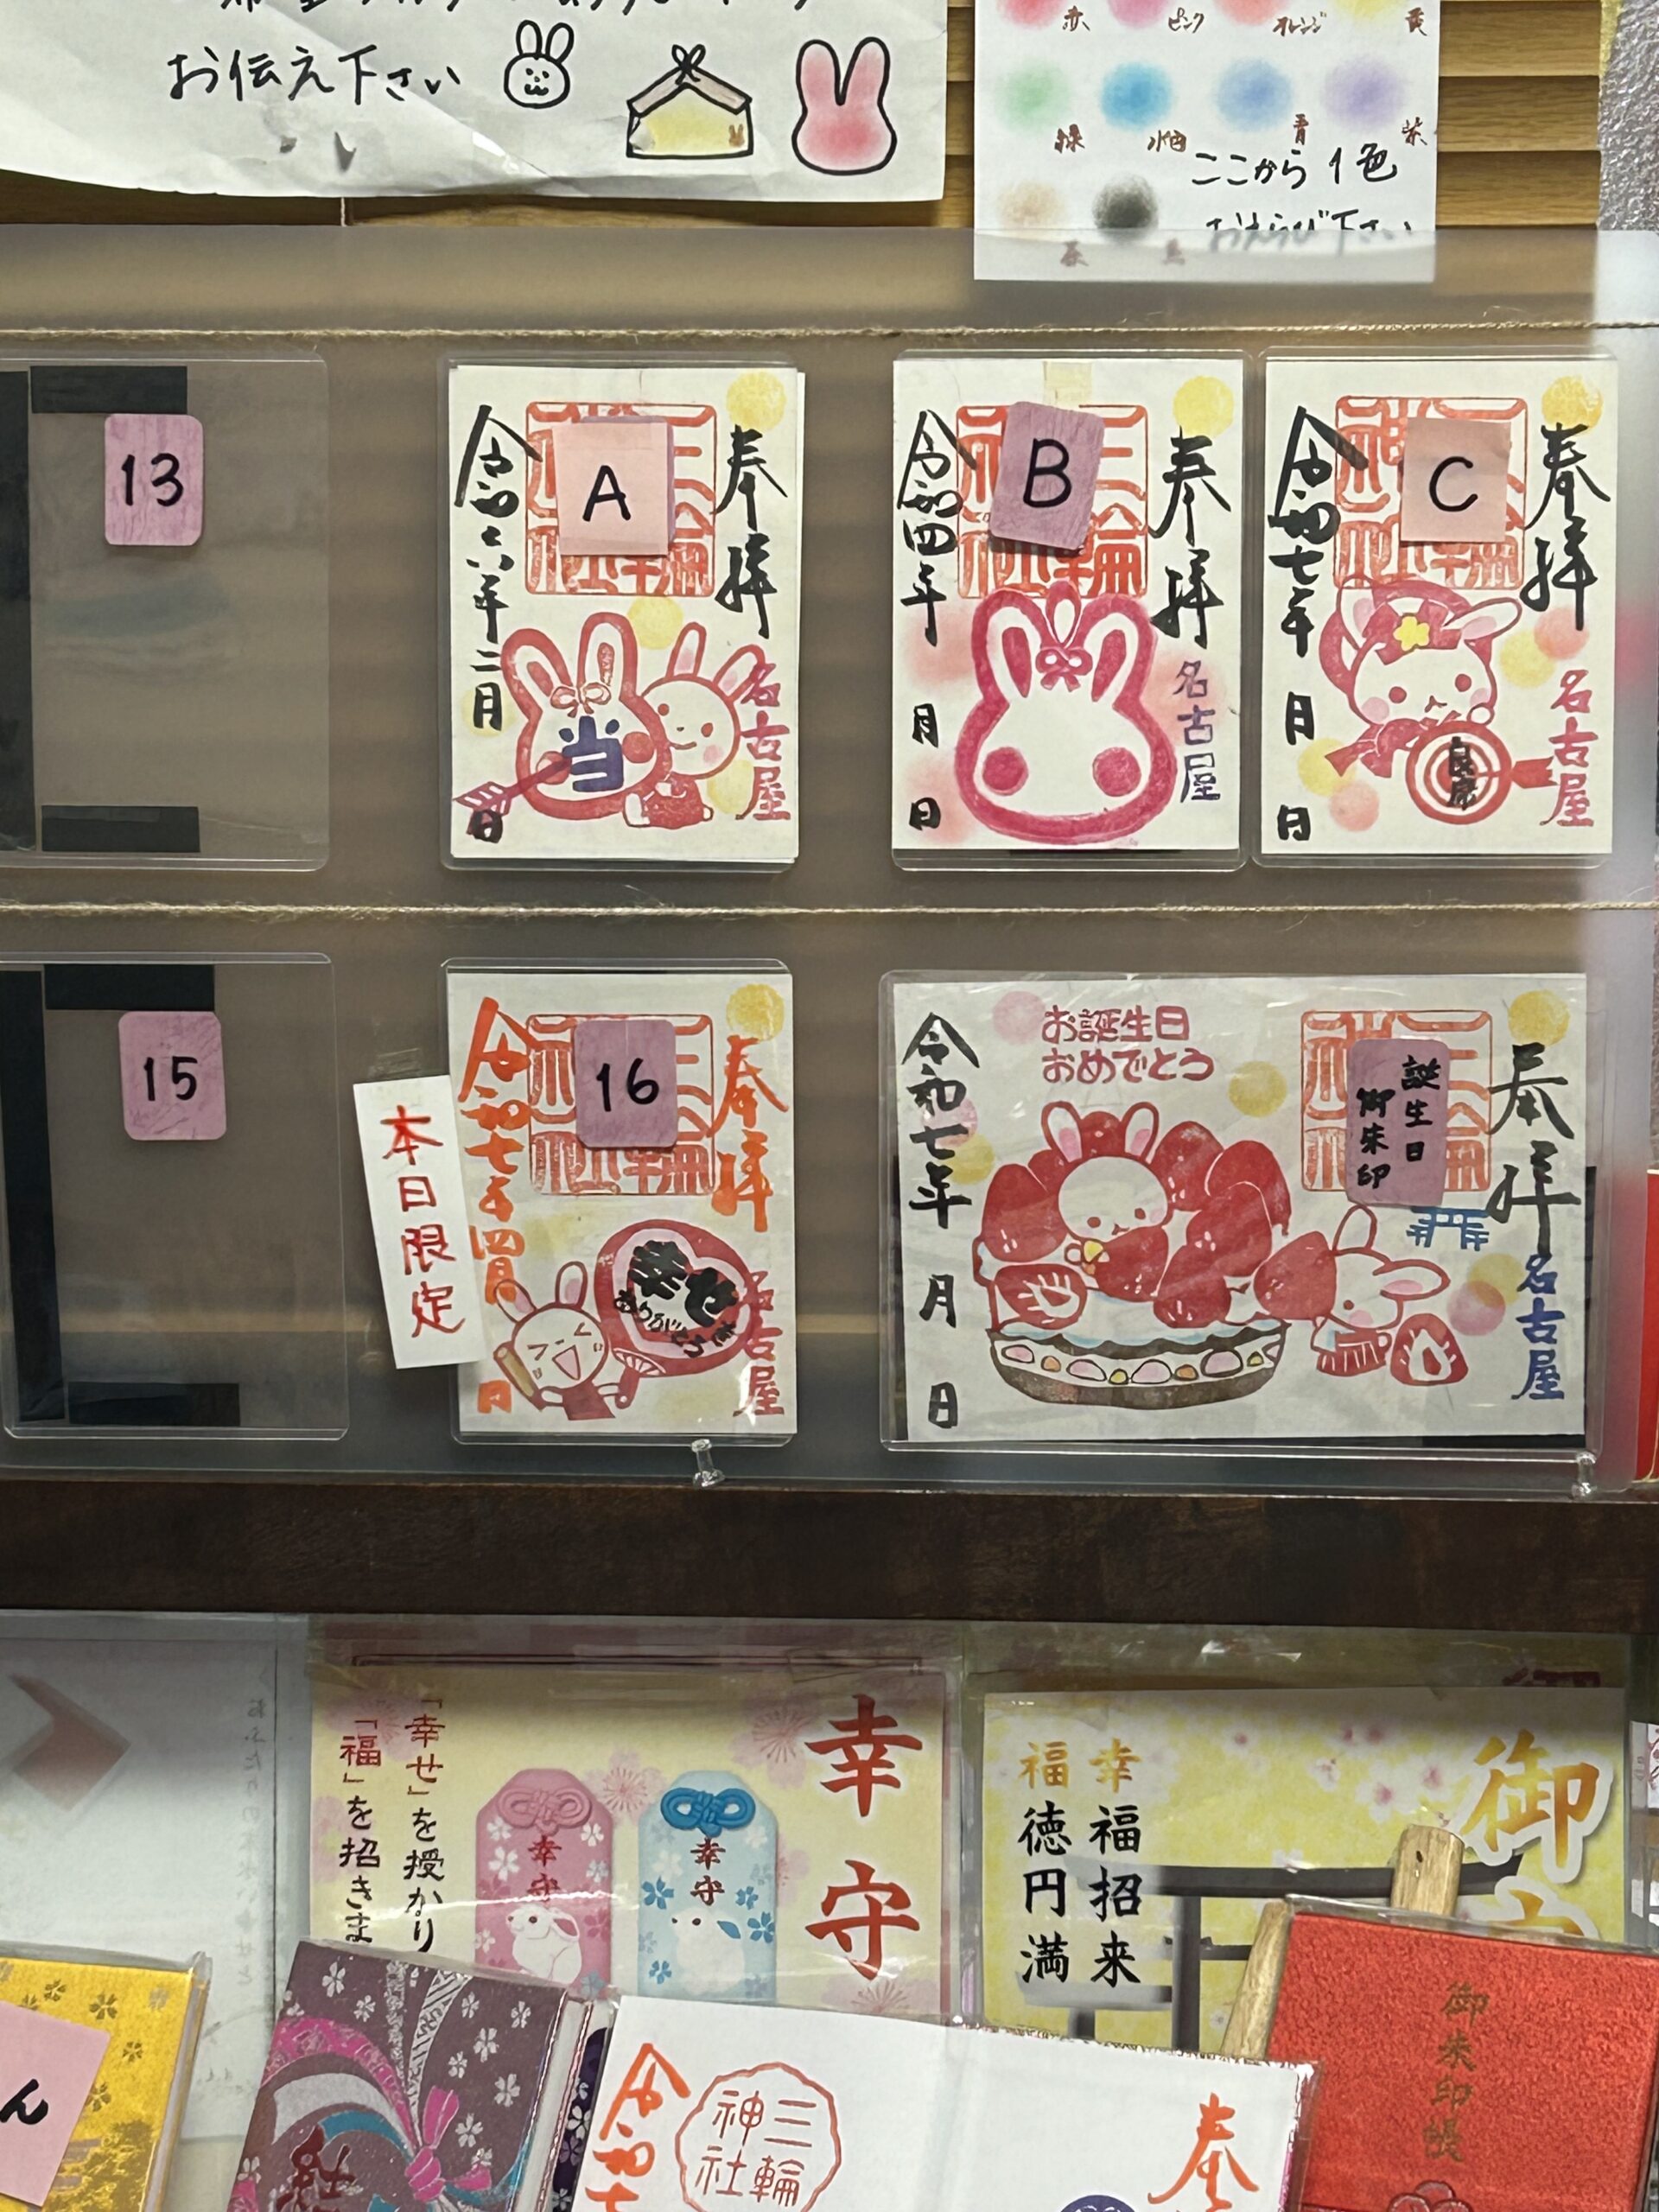 お伝え下さい
赤
ピンク
オレンジ
黄
緑
水色
青
紫
ここから1色
おえらび下さい
13
A
奉拝
令和六年二月
日
当
名古屋
B
奉拝
令和四年
月
日
名古屋
C
奉拝
令和七年
月
日
名古屋
15
本日限定
16
奉拝
令和七年四月
日
幸せを
ありがとう
名古屋
お誕生日
おめでとう
誕生日
御朱印
奉拝
令和七年
月
日
名古屋
幸守
「幸せ」を授かり
「福」を招きま
幸守
幸守
御
幸福招来
福徳円満
御朱印帳
ん
奉
三輪
神社
令和七